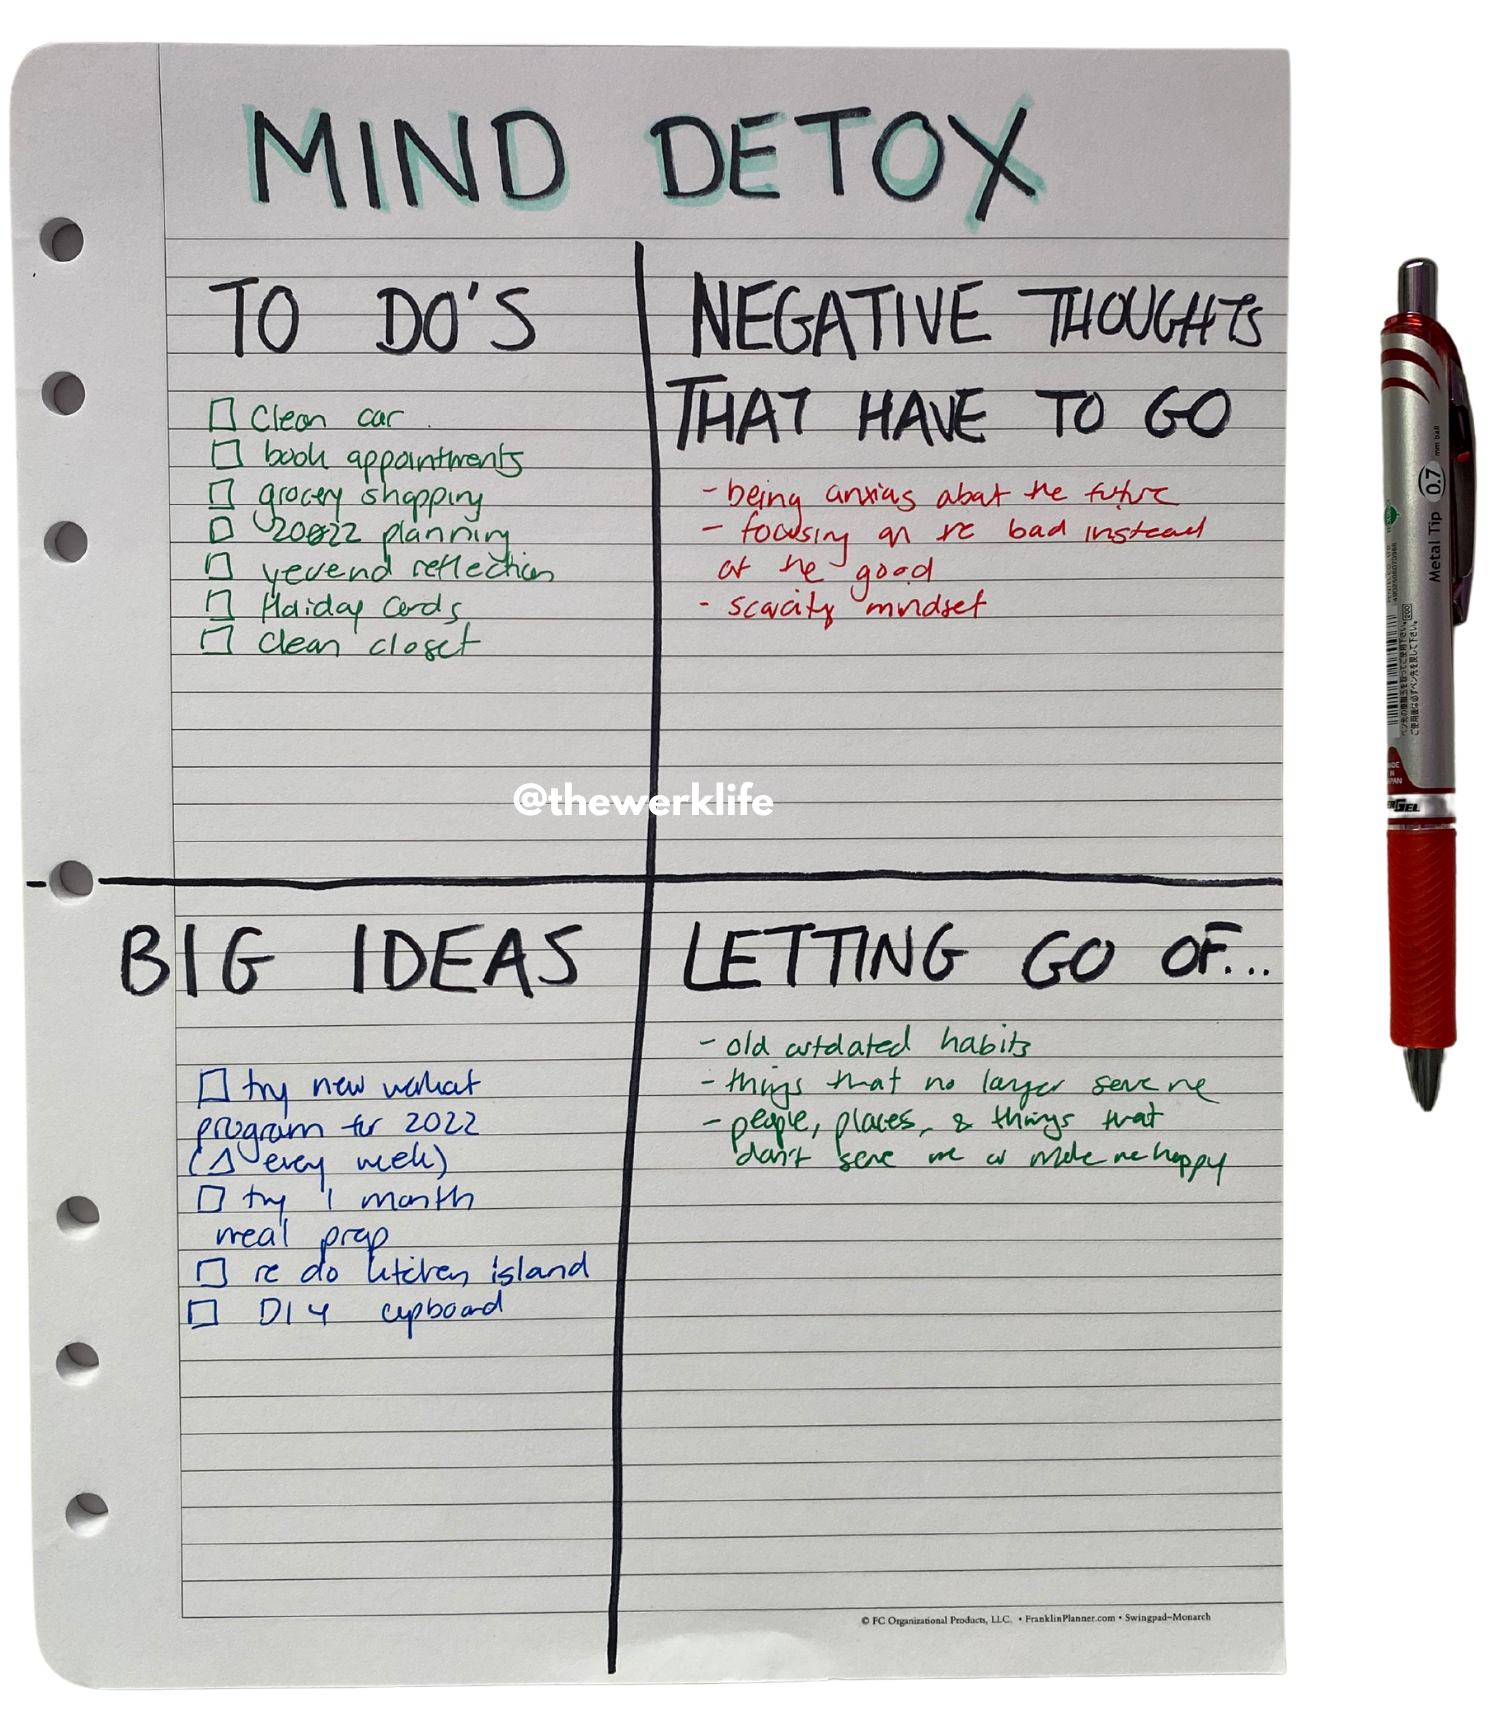 MIND DETOX
TO DO'S
☐ Clean car
☐ book appointments
☐ grocery shopping
☐ 2022 planning
☐ yerend reflection
☐ Holiday Cards
☐ Clean closet
NEGATIVE THOUGHTS
THAT HAVE TO GO
- being anxious about the future
- focusing on the bad instead
of the good
- scarcity mindset
@thewerklife
BIG IDEAS
☐ try new workout
program for 2022
(Δ every week)
☐ try 1 month
meal prep
☐ re do kitchen island
☐ DIY cupboard
LETTING GO OF...
- old outdated habits
- things that no longer serve me
- people, places, & things that
don't serve me or make me happy
© FC Organizational Products, LLC. • FranklinPlanner.com • Swingpad–Monarch
Metal Tip 0.7 mm ball
MADE
IN
JAPAN